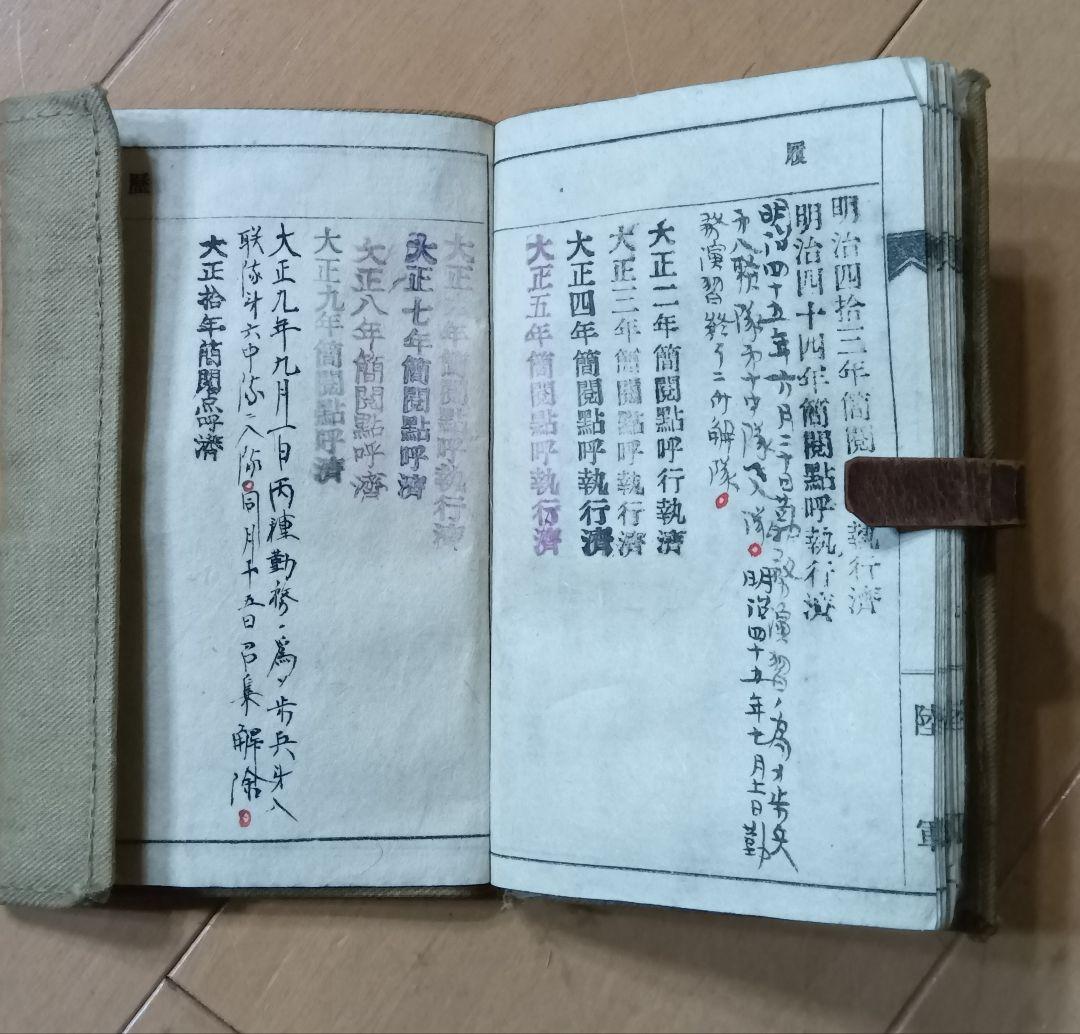 履
明治四拾三年簡閲執行濟
明治四十四年簡閲點呼執行濟
明治四十五年六月三十日勤務演習ノ為メ歩兵
第八聯隊第十中隊入隊明治四十五年七月 日勤
務演習終了ニ付解隊
大正二年簡閲點呼行執濟
大正三年簡閲點呼執行濟
大正四年簡閲點呼執行濟
大正五年簡閲點呼執行濟
陸軍
歴
大正 年簡閲點呼執行濟
大正七年簡閲點呼濟
大正八年簡閲點呼濟
大正九年簡閲點呼濟
大正九年九月一日丙種勤務ノ為メ歩兵才八
联隊才六中隊ニ入隊同月十五日召集解除
大正拾年簡閲点呼濟